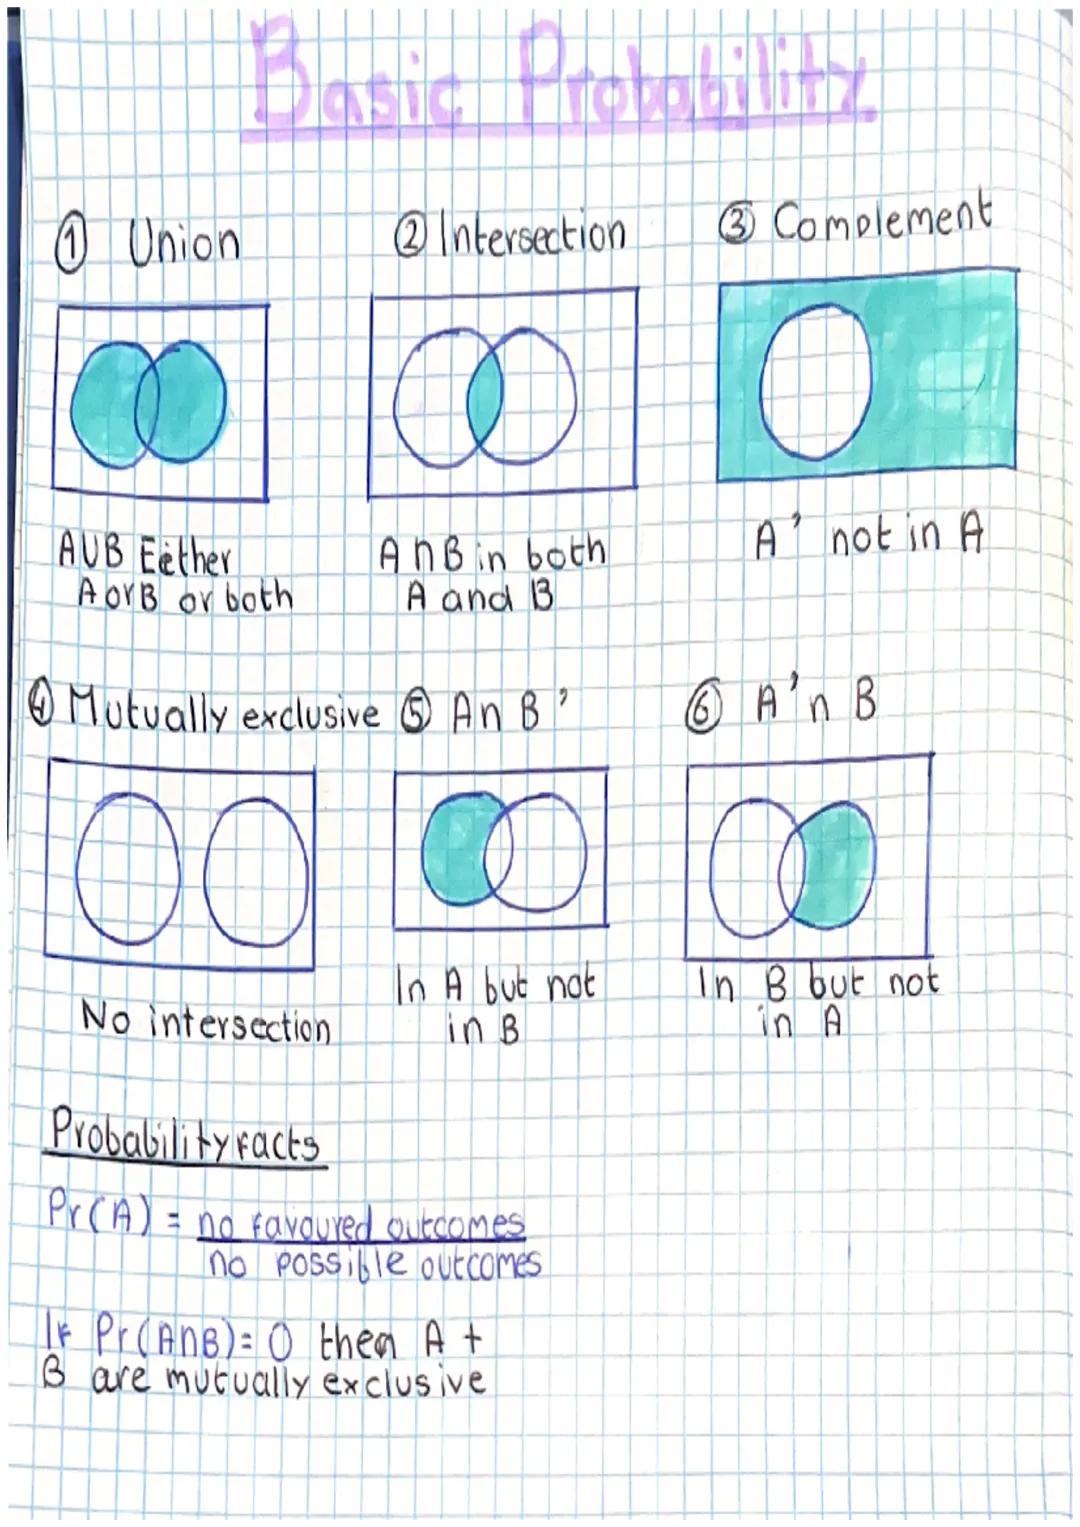 Basic Probability
① Union
② Intersection
③ Complement
AUB Either
A or B or both
A n B in both
A and B
A' not in A
④ Mutually exclusive
⑤ A n B'
⑥ A' n B
No intersection
In A but not
in B
In B but not
in A
Probability facts
Pr(A) = no favoured outcomes
no possible outcomes
If Pr(AnB) = 0 then A +
B are mutually exclusive